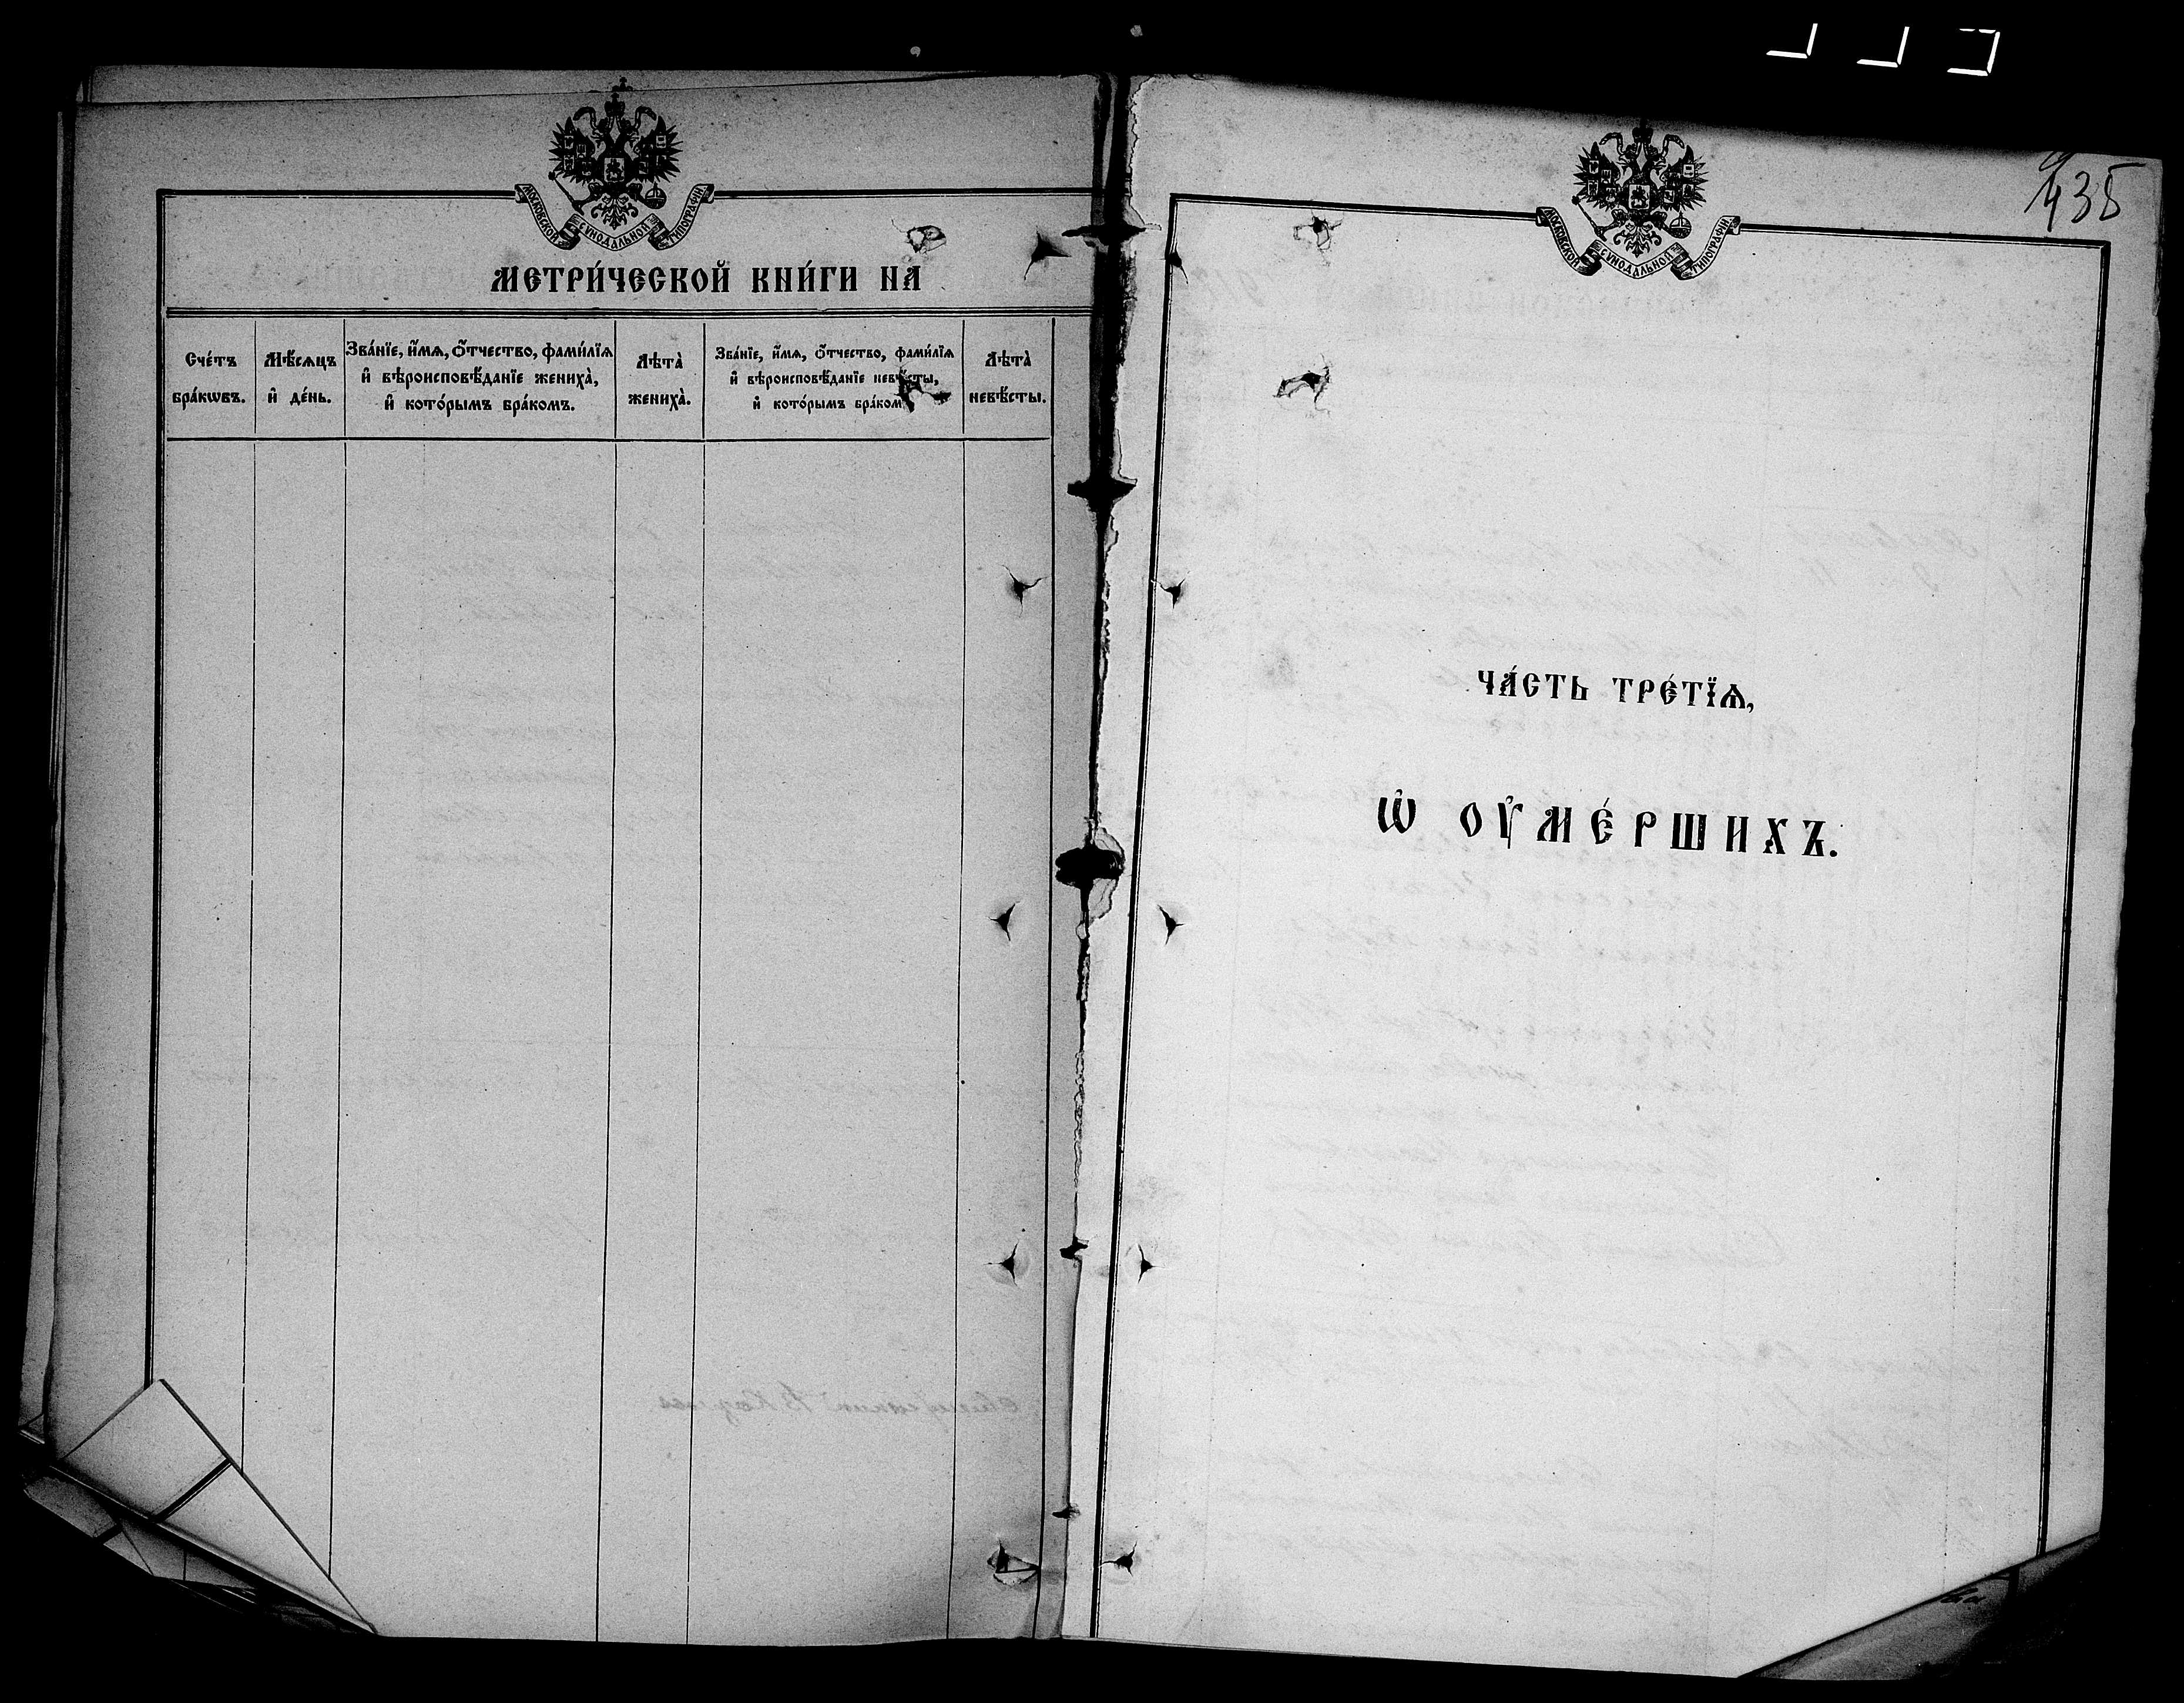 МОСКОВСКОЙ СѴНОДАЛЬНОЙ ТИПОГРАФІИ
МЕТРИ́ЧЕСКОЙ КНИ́ГИ НА
Сче́тъ
бра́кѡвъ.
Мѣ́сѧцъ
и҆ де́нь.
Зва́нїе, и҆́мѧ, ѻ҆́тчество, фами́лїѧ
и҆ вѣроисповѣ́данїе жениха̀,
и҆ кото́рымъ бра́комъ.
Лѣта̀
жениха̀.
Зва́нїе, и҆́мѧ, ѻ҆́тчество, фами́лїѧ
и҆ вѣроисповѣ́данїе невѣ́сты,
и҆ кото́рымъ бра́ком
Лѣта̀
невѣ́сты.
МОСКОВСКОЙ СѴНОДАЛЬНОЙ ТИПОГРАФІИ
435
ЧА́СТЬ ТРЕ́ТЇѦ,
Ѡ҆ ОУ҆МЕ́РШИХЪ.